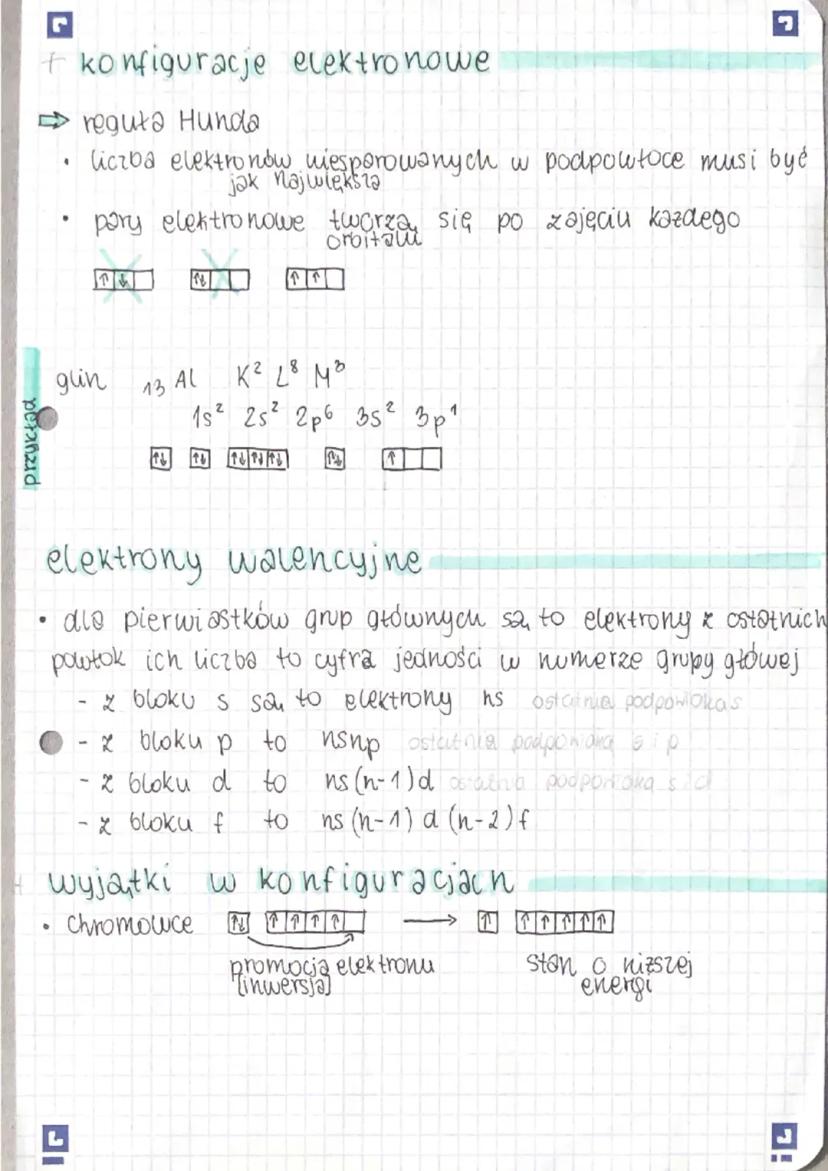 + konfiguracje elektronowe
⇒ reguła Hunda
• liczba elektronów niesparowanych w podpowłoce musi być
jak największa
• pary elektronowe tworzą się po zajęciu każdego
orbitalu
↑ ↓ ↑↓ ↑ ↑
glin 13 Al K² L⁸ M³
przykład
1s² 2s² 2p⁶ 3s² 3p¹
↑↓ ↑↓ ↑↓ ↑↓ ↑↓ ↑↓ ↑
elektrony walencyjne
• dla pierwiastków grup głównych są to elektrony z ostatnich
powłok ich liczba to cyfra jedności w numerze grupy głowej
- z bloku s są to elektrony ns ostatnia podpowłoka s
- z bloku p to nsnp ostatnia podpowłoka s i p
- z bloku d to ns(n-1)d ostatnia podpowłoka s d
- z bloku f to ns(n-1)d(n-2)f
wyjątki w konfiguracjach
• chromowce ↑↓ ↑ ↑ ↑ ↑ → ↑ ↑ ↑ ↑ ↑ ↑
promocja elektronu stan o niższej
[inwersja] energi